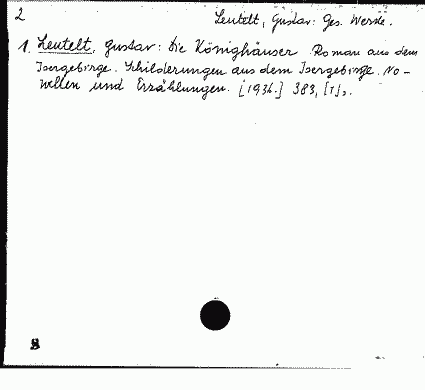 2 Leutelt, Gustav: Ges. Werke.
1. Leutelt, Gustav: Die Könighäuser. Roman aus dem
Isergebirge. Schilderungen aus dem Isergebirge. No-
vellen und Erzählungen. [1934.] 383, [1] s.
8